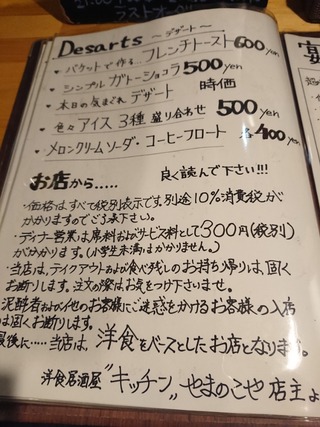 Desarts ～デザート～
・バケットで作る… フレンチトースト 600yen
・シンプル ガトーショコラ 500yen
・本日の気まぐれ デザート 時価
・色々アイス3種盛り合わせ 500yen
・メロンクリームソーダ・コーヒーフロート 各400yen
お店から‥‥‥ 良く読んで下さい!!!
・価格はすべて税別表示です。別途10%消費税が
かかりますのでご了承下さい。
・ディナー営業は席料およびサービス料として300円(税別)
がかかります。(小学生未満はかかりません。)
・当店は、テイクアウトおよび食べ残しのお持ち帰りは、固く
お断りします。注文の際はお気をつけ下さいませ。
泥酔者および他のお客様にご迷惑をかけるお客様の入店
は固くお断りします。
最後に‥‥‥当店は、洋食をベースとしたお店となります。
洋食居酒屋 "キッチン" やまのこや 店主よ